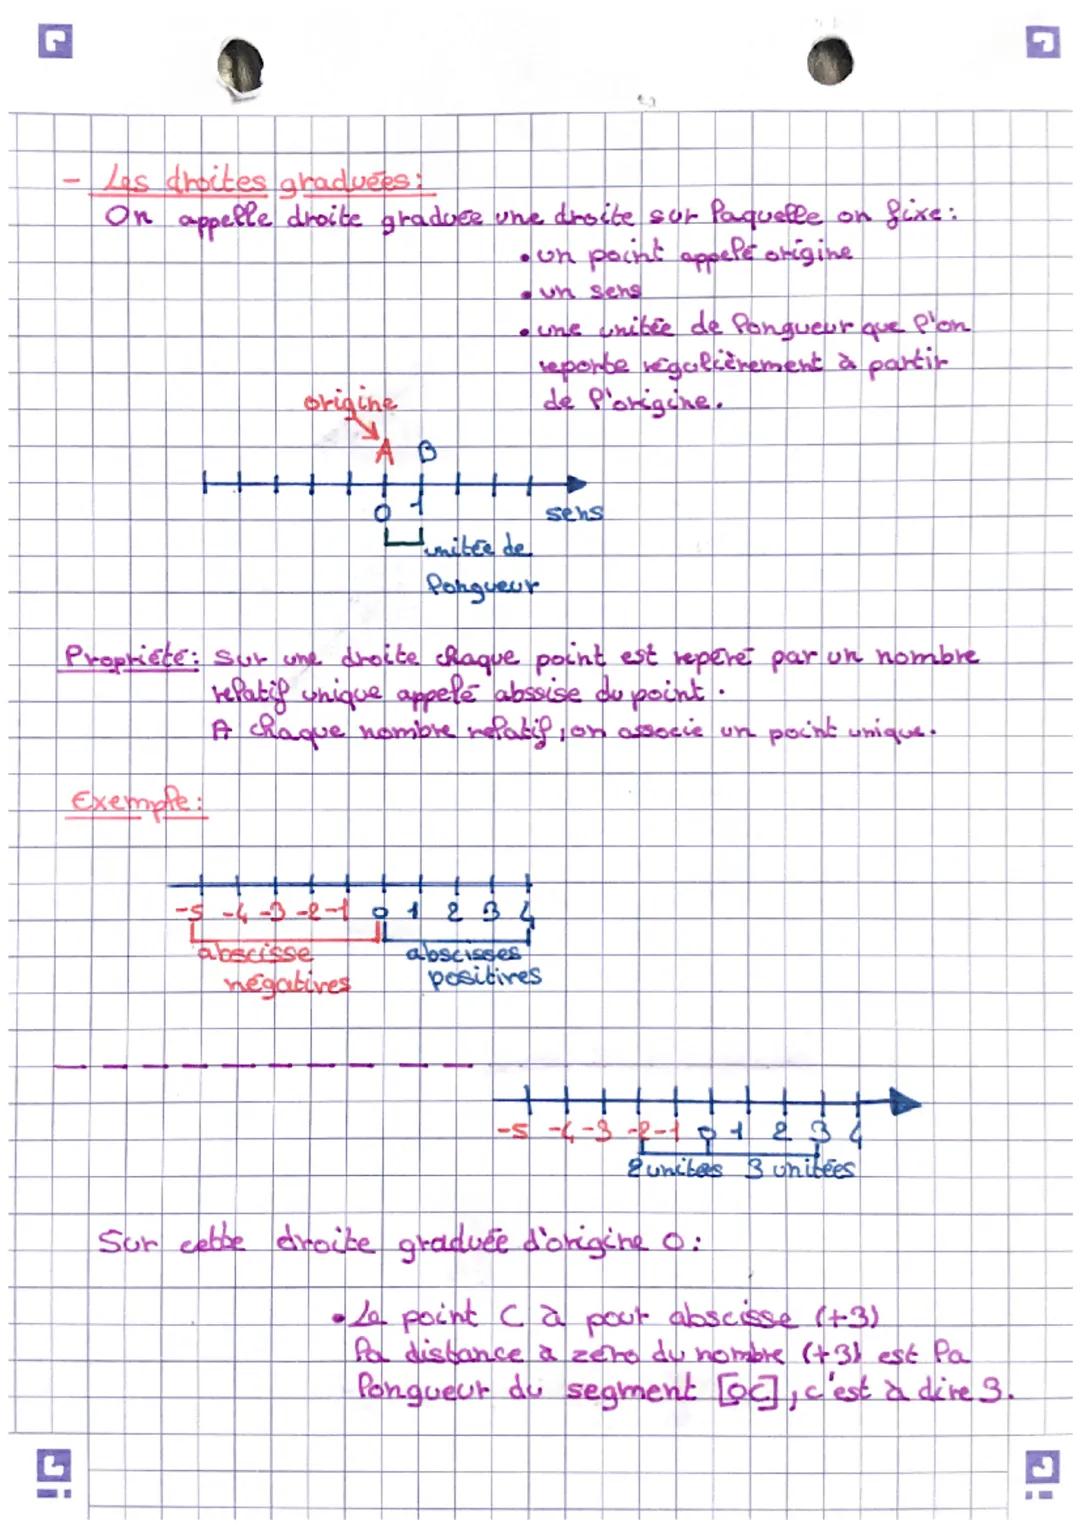 - Les droites graduées:
On appelle droite graduée une droite sur laquelle on fixe:
• un point appelé origine
• un sens
• une unitée de longueur que l'on
reporte régulièrement à partir
de l'origine.
origine
A B
0 1
sens
unitée de
longueur
Propriété: Sur une droite chaque point est repéré par un nombre
relatif unique appelé abssise du point.
A chaque nombre relatif, on associe un point unique.
Exemple:
-5 -4 -3 -2 -1 0 1 2 3 4
abscisse abscisses
négatives positives
-5 -4 -3 -2 -1 0 1 2 3 4
2 unitées 3 unitées
Sur cette droite graduée d'origine O:
• Le point C à pour abscisse (+3)
la distance à zéro du nombre (+3) est la
longueur du segment [OC], c'est à dire 3.